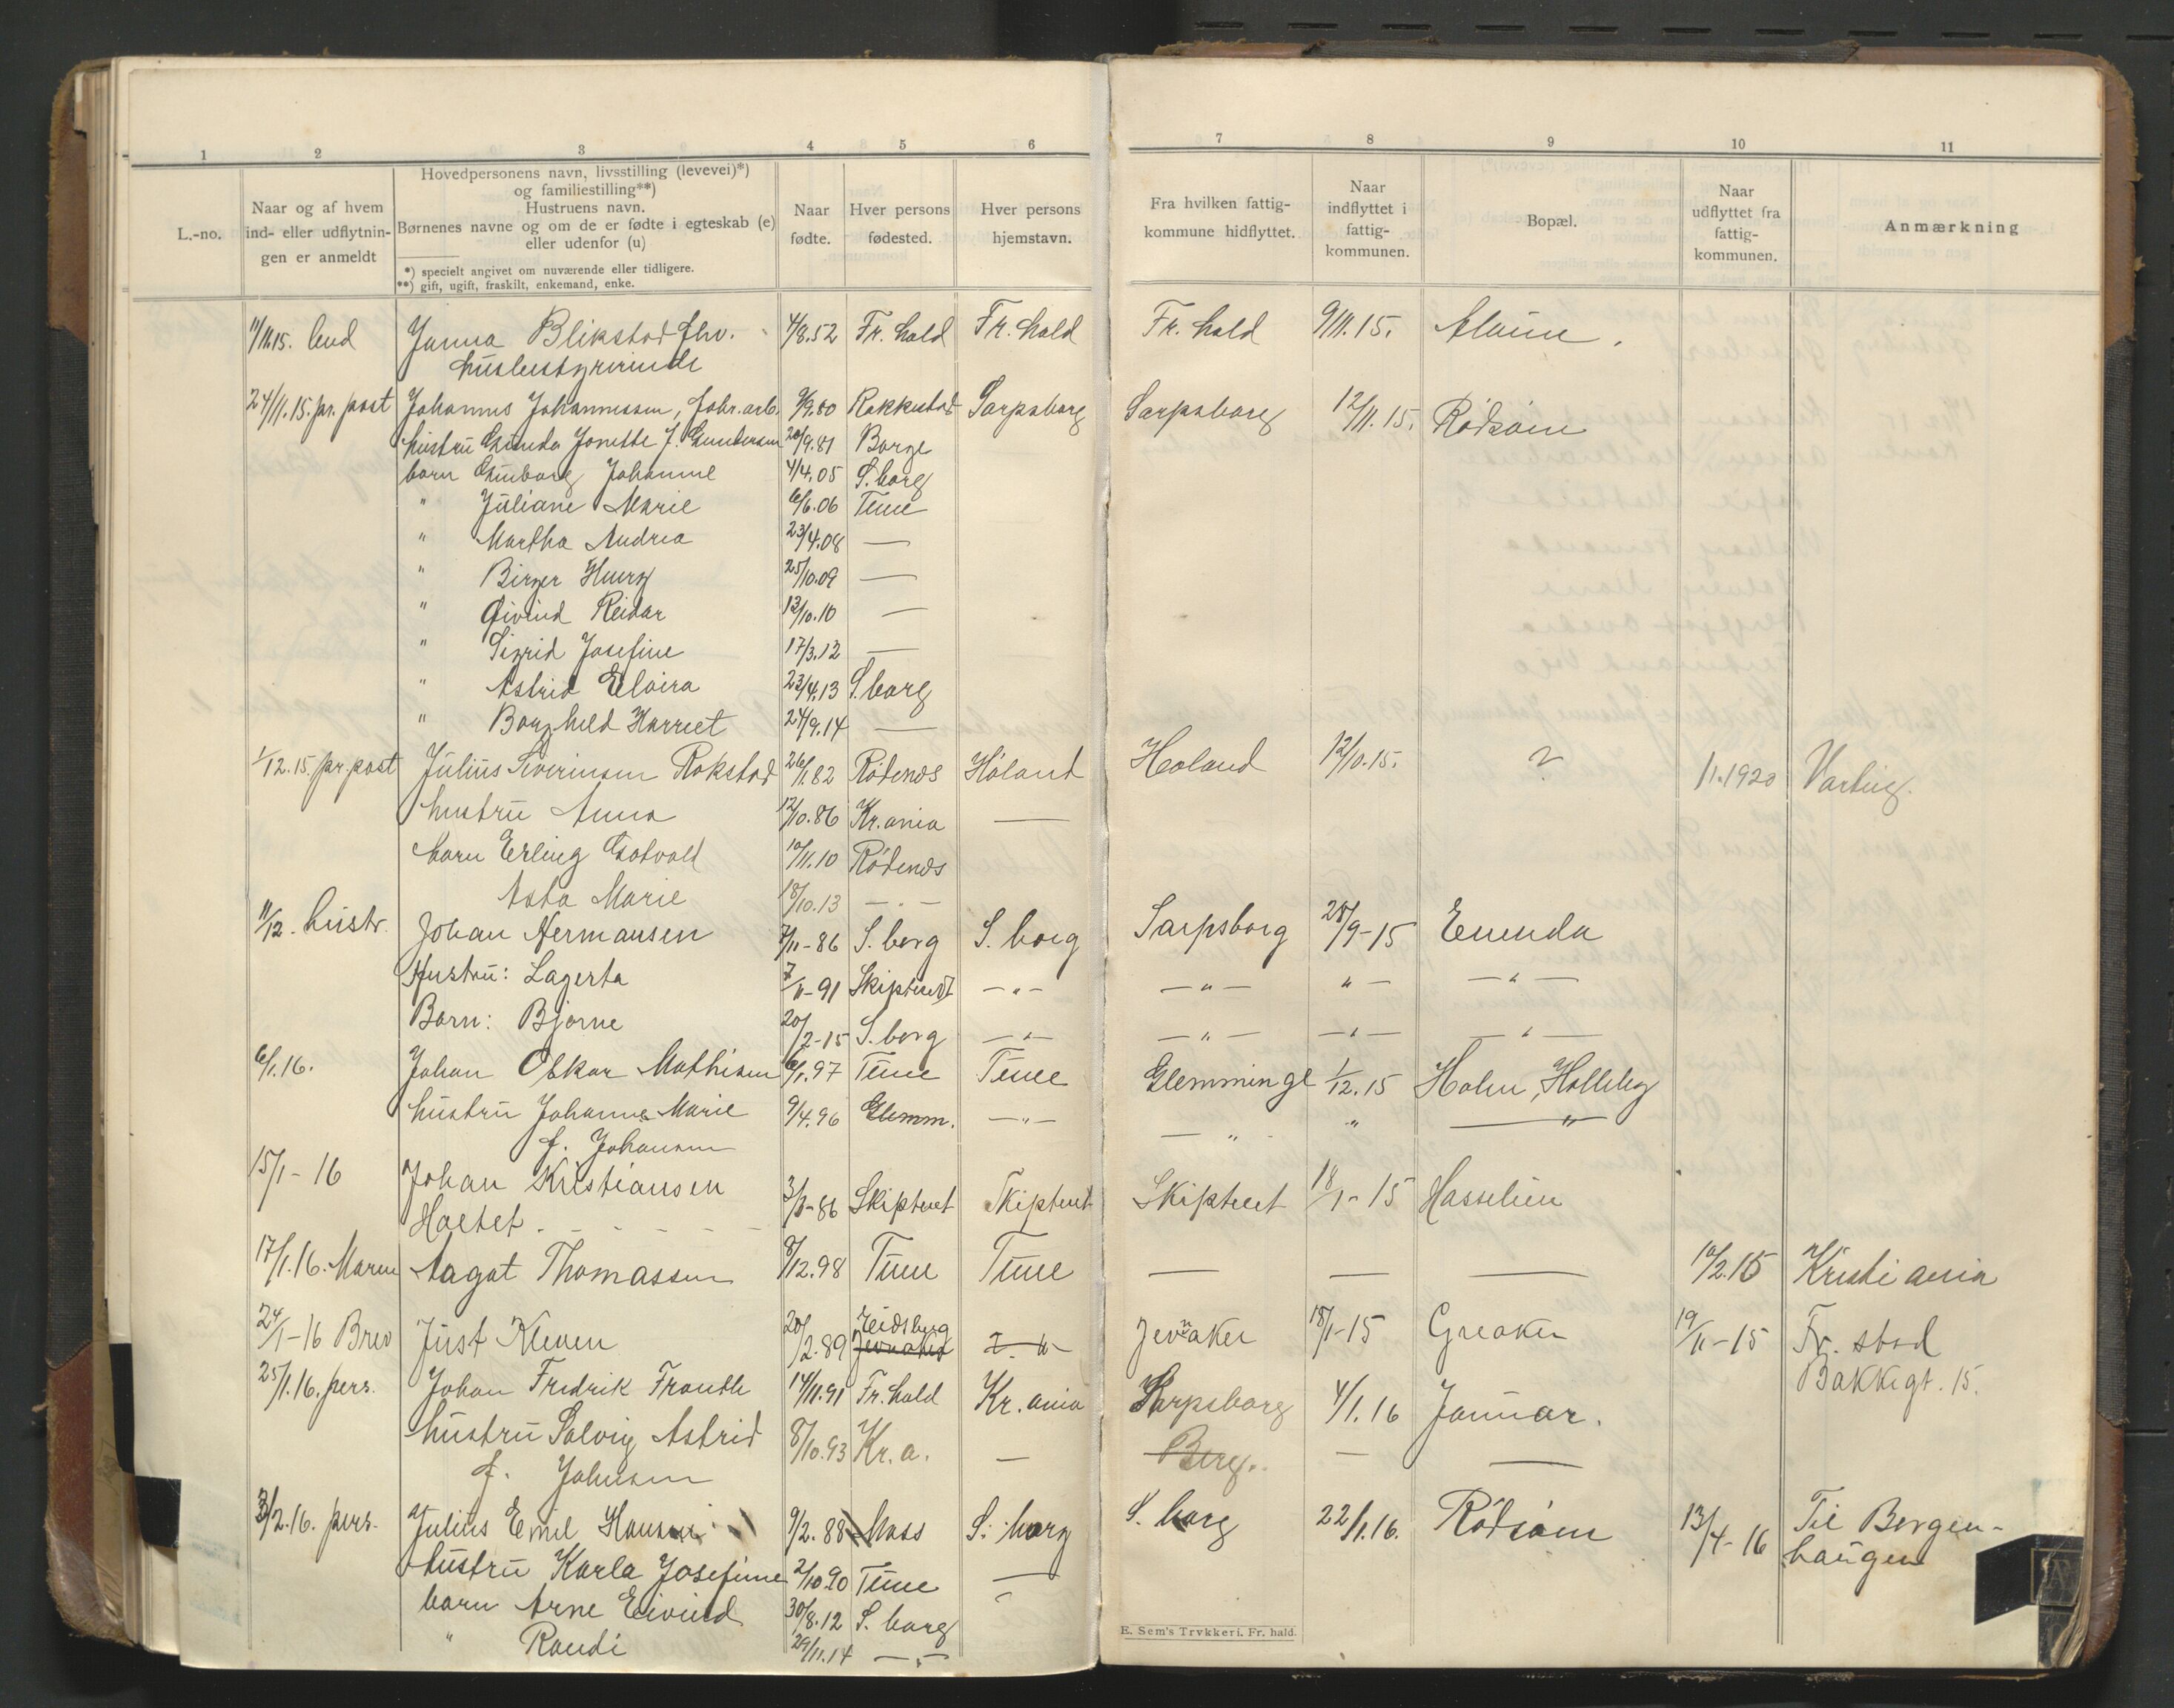 1 2 3 4 5 6 7 8 9 10 11
L.-no.
Naar og af hvem
ind- eller udflytnin-
gen er anmeldt
Hovedpersonens navn, livsstilling (levevei)*)
og familiestilling**)
Hustruens navn.
Børnenes navne og om de er fødte i egteskab (e)
eller udenfor (u)
*) specielt angivet om nuværende eller tidligere.
**) gift, ugift, fraskilt, enkemand, enke.
Naar
fødte.
Hver persons
fødested.
Hver persons
hjemstavn.
Fra hvilken fattig-
kommune hidflyttet.
Naar
indflyttet i
fattig-
kommunen.
Bopæl.
Naar
udflyttet fra
fattig-
kommunen.
Anmærkning
11/11.15. Janna Blikstad 4/8.52 Fr. hald Fr. hald Fr. hald 9/11.15. Alvim.
husbestyrerinde
24/11.15. pr. post Johannes Johannessen, fabr. arb. 9/9.80 Rakkestad Sarpsborg Sarpsborg 12/11.15. Rødsøim
hustru Gunda Jonette f. Gundersen 20/9.81 Borge
barn Gunborg Johanne 4/4.05 S. borg
" Juliane Marie 6/6.06 Tune
" Martha Andrea 23/4.08 —
" Birger Henry 25/10.09 —
" Øivind Reidar 12/10.10 —
" Sigrid Josefine 17/3.12 —
" Astrid Elvira 23/4.13 S. borg
" Borghild Harriet 24/9.14 —
1/12.15. pr. post Julius Severinsen Rokstad 26/1.82 Rødenes Høland Høland 12/10.15. ? 11.1920 Varteig.
hustru Anna 12/10.86 Kr.ania —
barn Erling Gotvold 10/11.10 Rødenes
Asta Marie 18/10.13 — . —
11/12. hustr. Johan Hermansen 7/11-86 S. borg S. borg Sarpsborg 28/9-15 Enenda
Hustru: Lagerta 7/11-91 Skiptvedt — " — — " — " — — " —
Barn: Bjarne 20/2-15 S. borg — " — — " — — " — — " —
6/1.16. Johan Oskar Mathisen 6/1.97 Tune Tune Glemminge 1/12.15 Holm, Holleby
hustru Johanne Marie 9/4.96 Glemm. — " — — " — " — " —
f. Johansen
15/1-16 Johan Kristiansen
Haetet 3/11-86 Skiptvet Skiptvet Skiptvet 18/1-15 Hasselien
17/1.16. Maren Aagot Thomassen 9/12.98 Tune Tune — — — 10/2.15 Kristiania
24/1-16 Brev Just Kleven 20/2.89 Eidsberg Jevnaker Jevnaker 18/1-15 Greaker 19/11-15 Fr. stad
Bakkegt. 15.
25/1.16. pers. Johan Fredrik Franth 14/11.91 Fr. hald Kr. ania Sarpsborg 4/1.16 Januar.
hustru Solvig Astrid 8/10.93 Kr. a. — Berg. — —
f. Johnsen
3/2.16. pers. Julius Emil Hansen 9/2.88 Moss S. borg S. borg 22/1.16. Rødsøim 13/4-16 Til Bergen-
haugen
hustru Karla Josefine 2/10.90 Tune —
barn Arne Eivind 30/8.12 S. borg
" Randi 29/11.14 — " —
E. Sem's Trykkeri. Fr. hald.